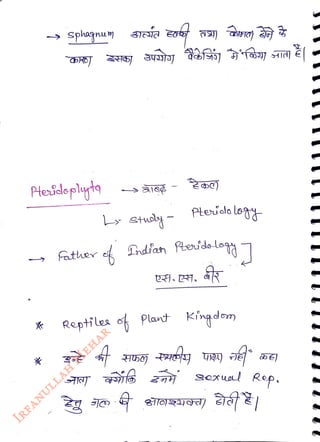 → Sphagnum अत्यंत हल्की तथा कोमल होने के
कारण इसका उपयोग पैकेजिंग में किया जाता है।
Pteridophyta → शब्द - हैकल
↳ study - Pteridology
→ Father of Indian Pteridology
एस. एस. बीर
* Reptiles of Plant Kingdom
* इन्हें भी सफल स्थलीय पादप नहीं कहा
जाता क्योंकि इनमें sexual Rep.
हेतु जल की आवश्यकता होती है।